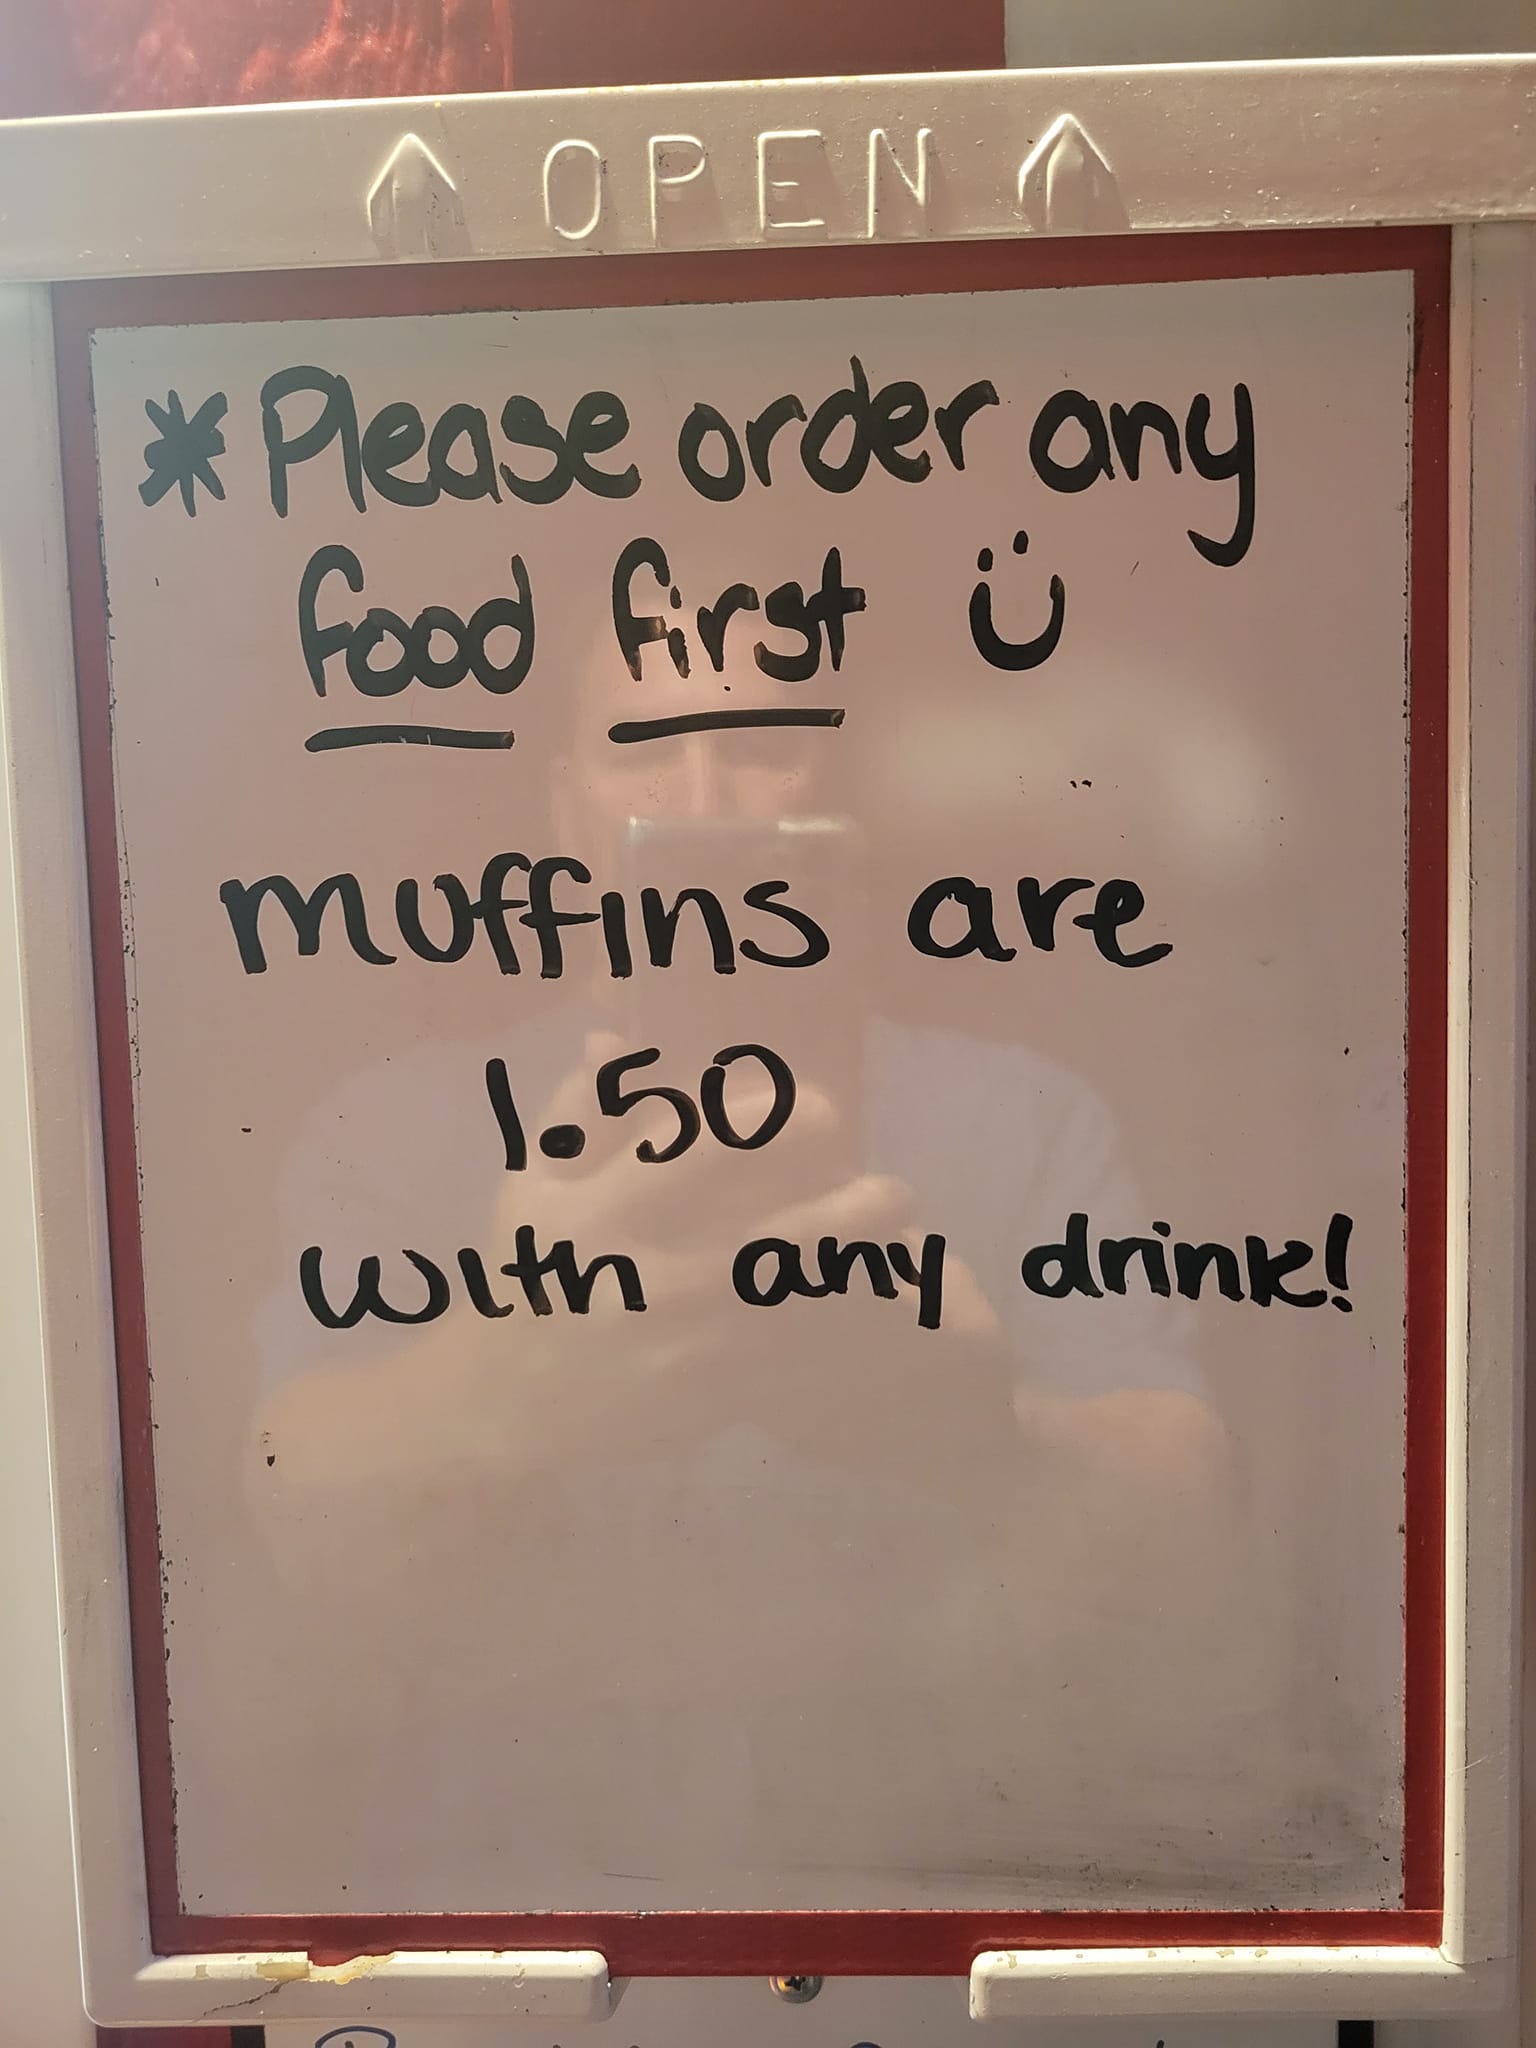 ↑ OPEN ↑
* Please order any
food first ü
muffins are
1.50
with any drink!